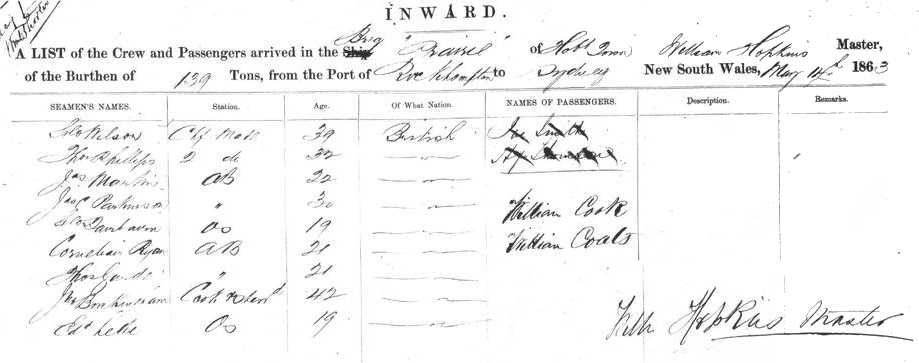 INWARD.
A LIST of the Crew and Passengers arrived in the Ship Brig of Hobt Town William Hopkins Master,
of the Burthen of 139 Tons, from the Port of Rockhampton to Sydney New South Wales, May 14th 1863
SEAMEN'S NAMES. Station. Age. Of What Nation. NAMES OF PASSENGERS. Description. Remarks.
Wilson Chf Mate 39 British Jas Smith
Thos Phillips 2 do 32
Jas AB 22
Jas Parkinson " 30 William Cook
Geo OS 19 William Coals
Cornelius Ryan AB 21
Thos " 21
Jas Cook & Stewd 42
Edd OS 19
Willm Hopkins Master